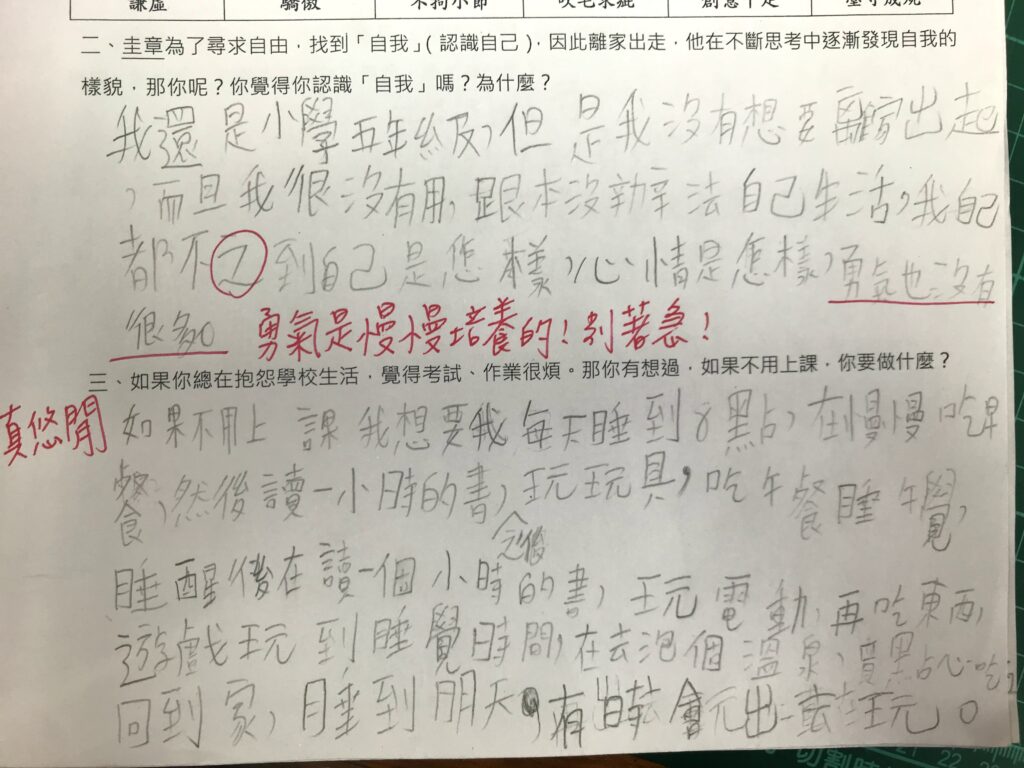 謙虛 驕傲 不拘小節 吹毛求疵 創意十足 墨守成規
二、圭章為了尋求自由，找到「自我」(認識自己)，因此離家出走，他在不斷思考中逐漸發現自我的
樣貌，那你呢？你覺得你認識「自我」嗎？為什麼？
我還是小學五年級，但是我沒有想要離家出起
，而且我很沒有用，跟本沒辦法自己生活，我自己
都不之到自己是怎樣，心情是怎樣，勇氣也沒有
很多。 勇氣是慢慢培養的！別著急！
三、如果你總在抱怨學校生活，覺得考試、作業很煩。那你有想過，如果不用上課，你要做什麼？
真悠閒 如果不用上課我想要我每天睡到8點，在慢慢吃早
餐，然後讀一小時的書，玩玩具，吃午餐睡午覺，
然後
睡醒後在讀一個小時的書，玩電動，再吃東西，
遊戲玩到睡覺時間，在去泡個溫泉，
回到家，睡到朋天，有時會